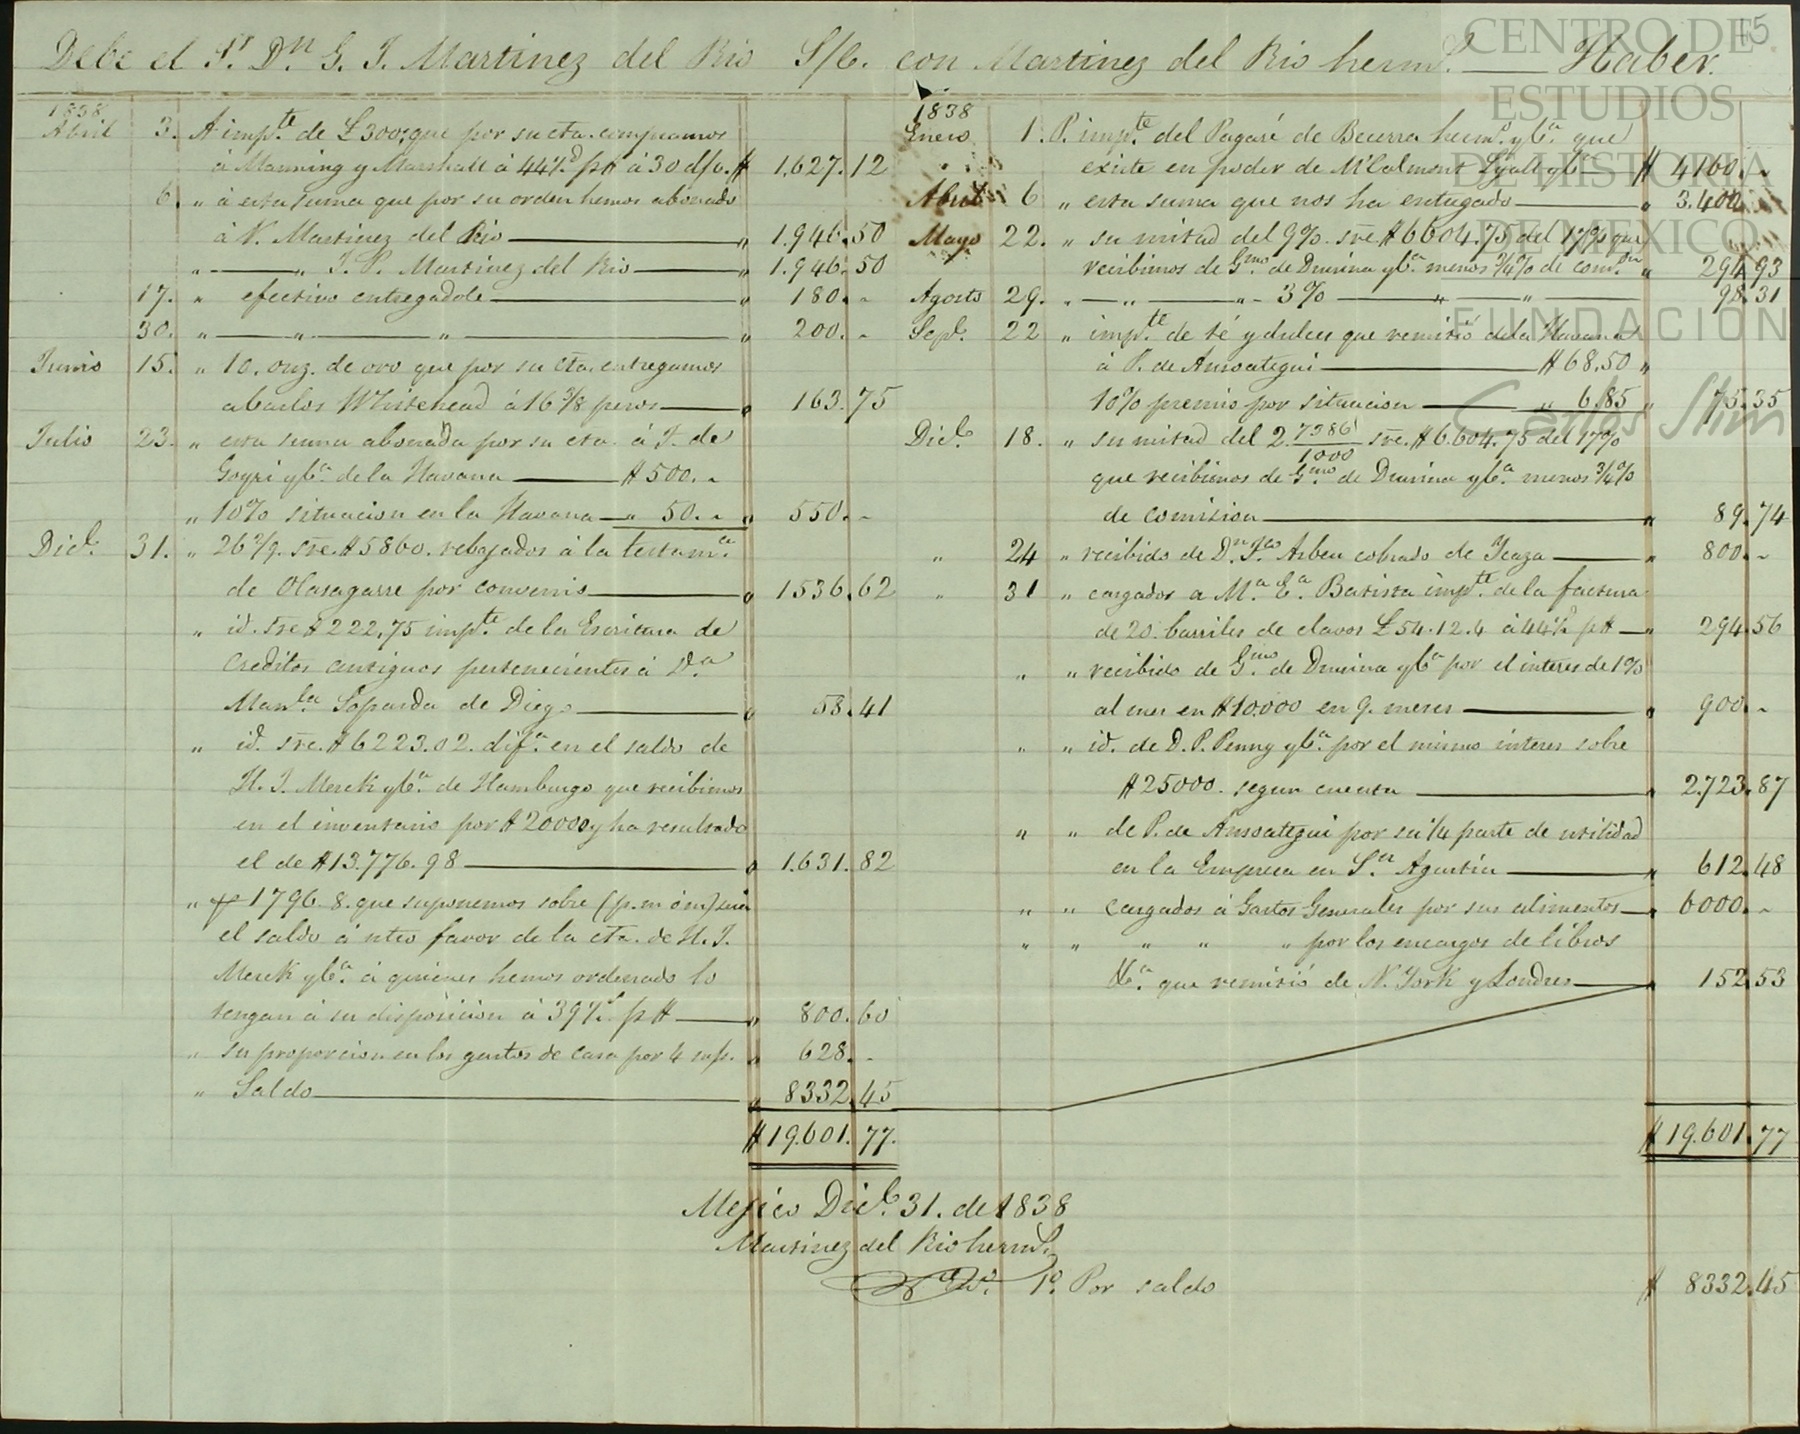 Debe el Sr. Dn. G. J. Martinez del Rio S/C. con Martinez del Rio hermS. Haber.
1838
Abril 3. A impte de £300, que por su cta. compramos
à Manning y Marshall à 44½d p$ à 30 d/v. $ 1.627.12
6. " à esta suma que por su orden hemos abonado
à V. Martinez del Rio " 1.946.50
" — " J. P. Martinez del Rio " 1.946.50
17. " efectivo entregadole " 180. -
30. " — " — " " 200. -
Junio 15. " 10. onz. de oro que por su cta. entregamos
à Carlos Whitehead à 16 3/8 pesos " 163.75
Julio 23. " esta suma abonada por su cta. à J. de
Goyri yCa. de la Havana $ 500. -
" 10% situacion en la Havana " 50. - " 550. -
Dice. 31. " 26 2/9. sre. $5860. rebajados à la testama.
de Olasagarre por convenio " 1536.62
" id. sre $222,75 impte. de la Escritura de
Creditos antiguos pertenecientes à Da.
Manla. de Diego " 58.41
" id. sre. $6223.02. difa. en el saldo de
H. J. Merck yCa. de Hamburgo que recibimos
en el inventario por $20000 y ha resultado
el de $13.776.98 " 1.631.82
" 1796.8. que suponemos sobre (p. m ó m) será
el saldo à ntro favor de la cta. de H. J.
Merck yCa. à quienes hemos ordenado lo
tengan à su disposicion à 39½d. p$ " 800.60
" su proporcion en los gastos de casa por 4 " 628. -
" Saldo " 8332.45
$ 19.601.77.
1838
Enero 1. P. impte. del Pagaré de Becerra herms. yCa. que
existe en poder de McCalmont yCa $ 4160. -
Abril 6 " esta suma que nos ha entregado " 3.400
Mayo 22. " su mitad del 9% sre $6604.75 del 17% que
recibimos de Gmo. de Drusina yCa. menos ¾% de comon. " 294.93
Agosto 29. " — " — " - 3% — " — " 98.31
Sepe. 22 " impte. de té y dulces que remitió de la Havana
à P. de Ansoategui $ 68.50 "
10% premio por situacion " 6.85 " 75.35
Dice. 18. " su mitad del 2 7386/1000 sre. $6.604.75 del 17%
que recibimos de Gmo. de Drusina yCa. menos ¾%
de comision " 89.74
" 24 " recibido de Dn. Fco Arbeu cobrado de Icaza " 800. -
" 31 " cargados a Ma. Ea. Batista impte. de la factura
de 20. barriles de clavos £54.12.4 à 44½d p$ " 294.56
" " recibido de Gmo. de Drusina yCa por el interes de 1%
al mes en $10.000 en 9. meses " 900. -
" " id. de D. P. Penny yCa. por el mismo interes sobre
$25000. segun cuenta " 2.723.87
" " de P. de Ansoategui por su ¼ parte de utilidad
en la Empresa en Sn. Agustin " 612.48
" " cargados à Gastos Generales por sus alimentos " 6000. -
" " " " " por los encargos de libros
&a. que remitió de N. York y Londres " 152.53
$ 19.601.77
Mejico Dice. 31. de 1838
Martinez del Rio hermS.
1o. Por saldo $ 8332.45
15
CENTRO DE
ESTUDIOS
DE HISTORIA
DE MÉXICO
FUNDACIÓN
Carlos Slim